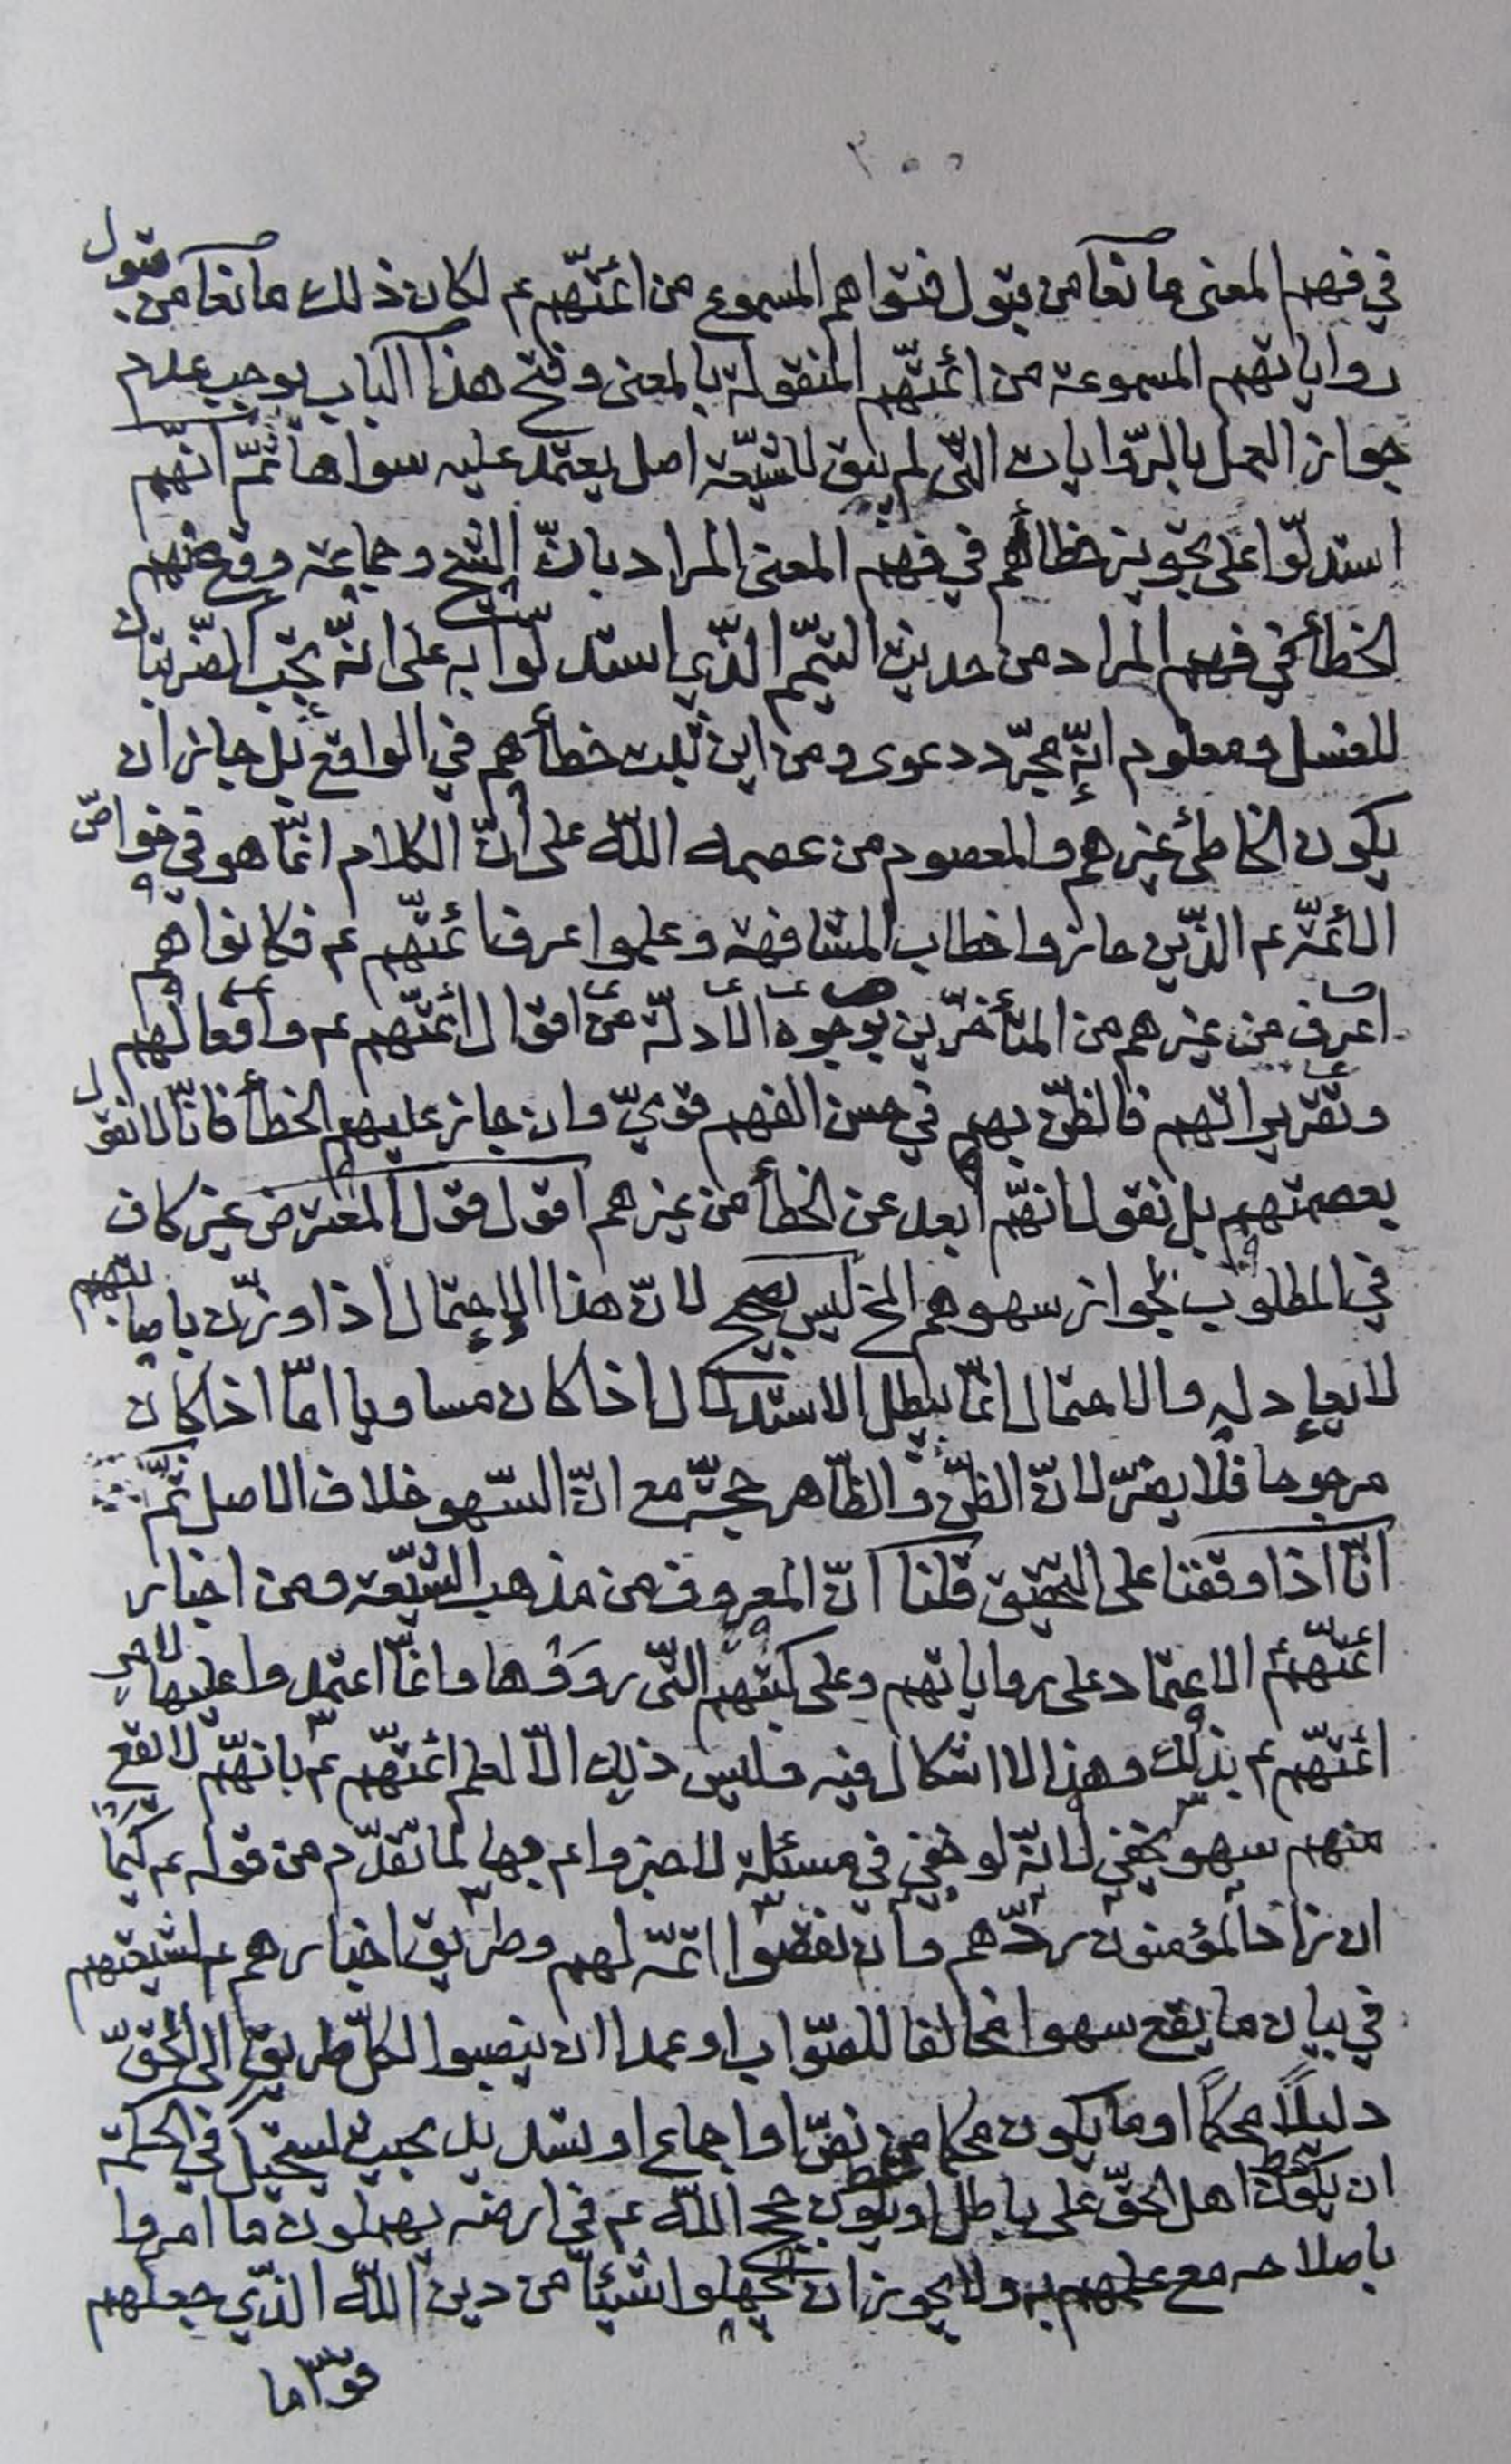 في فهم المعنى مانعا من قبول فتواهم المسموع من ائمّتهم ع لكان ذلك مانعا من قبول
رواياتهم المسموعة من ائمّتهم المنقولة بالمعنى وفتح هذا الباب يوجب عدم
جواز العمل بالرّوايات التّي لم يبق للشّيعة اصل يعتمد عليه سواها ثمّ انّهم
استدلّوا على تجويز خطائهم في فهم المعنى المراد بانّ الشيخ وجماعة وقع منهم
الخطأ في فهم المراد من حديث التيمّم الذّي استدلّوا به على انّه يجب الضّربتان
للغسل ومعلوم انّه مجرّد دعوى ومن اين ثبت خطأهم في الواقع بل جايز ان
يكون الخاطئ غيرهم والمعصوم من عصمه اللّه على انّ الكلام انمّا هو في خواصّ
الائمّة ع الذّين حازوا خطاب المشافهة وعلموا عرف ائمّتهم ع فكانوا هم
اعرف من غيرهم من المتأخّرين بوجوه الادلّة من اقوال ائمّتهم ع وافعالهم
وتقريراتهم فالظنّ بهم في حسن الفهم قويّ وان جاز عليهم الخطأ فانّا لا نقول
بعصمتهم بل نقول انّهم ابعد عن الخطأ من غيرهم اقول قول المعترض غير كاف
في المطلوب لجواز سهوهم الخ ليس بصحيح لانّ هذا الاحتمال اذا وزن باصابتهم
لا يعادله والاحتمال انمّا يبطل الاستدلال اذا كان مساويا امّا اذا كان
مرجوحا فلا يضرّ لانّ الظنّ والظّاهر حجّة مع انّ السّهو خلاف الاصل ثمّ
انّا اذا وقفنا على التحقيق قلنا انّ المعروف من مذهب الشّيعة ومن اخبار
ائمّتهم الاعتماد على رواياتهم وعلى كتبهم التّي رووها وانمّا اعتمدوا عليها لامر
ائمّتهم ع بذلك وهذا لا اشكال فيه وليس ذلك الاّ لعلم ائمّتهم ع بانهّم لا يقع
منهم سهو يخفي لانّه لو خفي في مسئلة لاخبروا عم بها لما تقدّم من قوله ع كيما
ان زاد المؤمنون ردّهم وان نقصوا اتمّه لهم وطريق اخبارهم ع لشيعتهم
في بيان ما يقع سهوا مخالفا للصّواب او عمدا ان ينصبوا لكلّ طريق الى الحقّ
دليلاً محكماً او ما يكون محكما من نصّ او اجماع او تسديد بحيث يستحيل في الحكمة
ان يكون اهل الحقّ على باطل او يكون حجج اللّه ع في ارضه يهملون ما امروا
باصلاحه مع علمهم به ولا يجوز ان يجهلوا شيئا من دين اللّه الذّي جعلهم
قوّاما